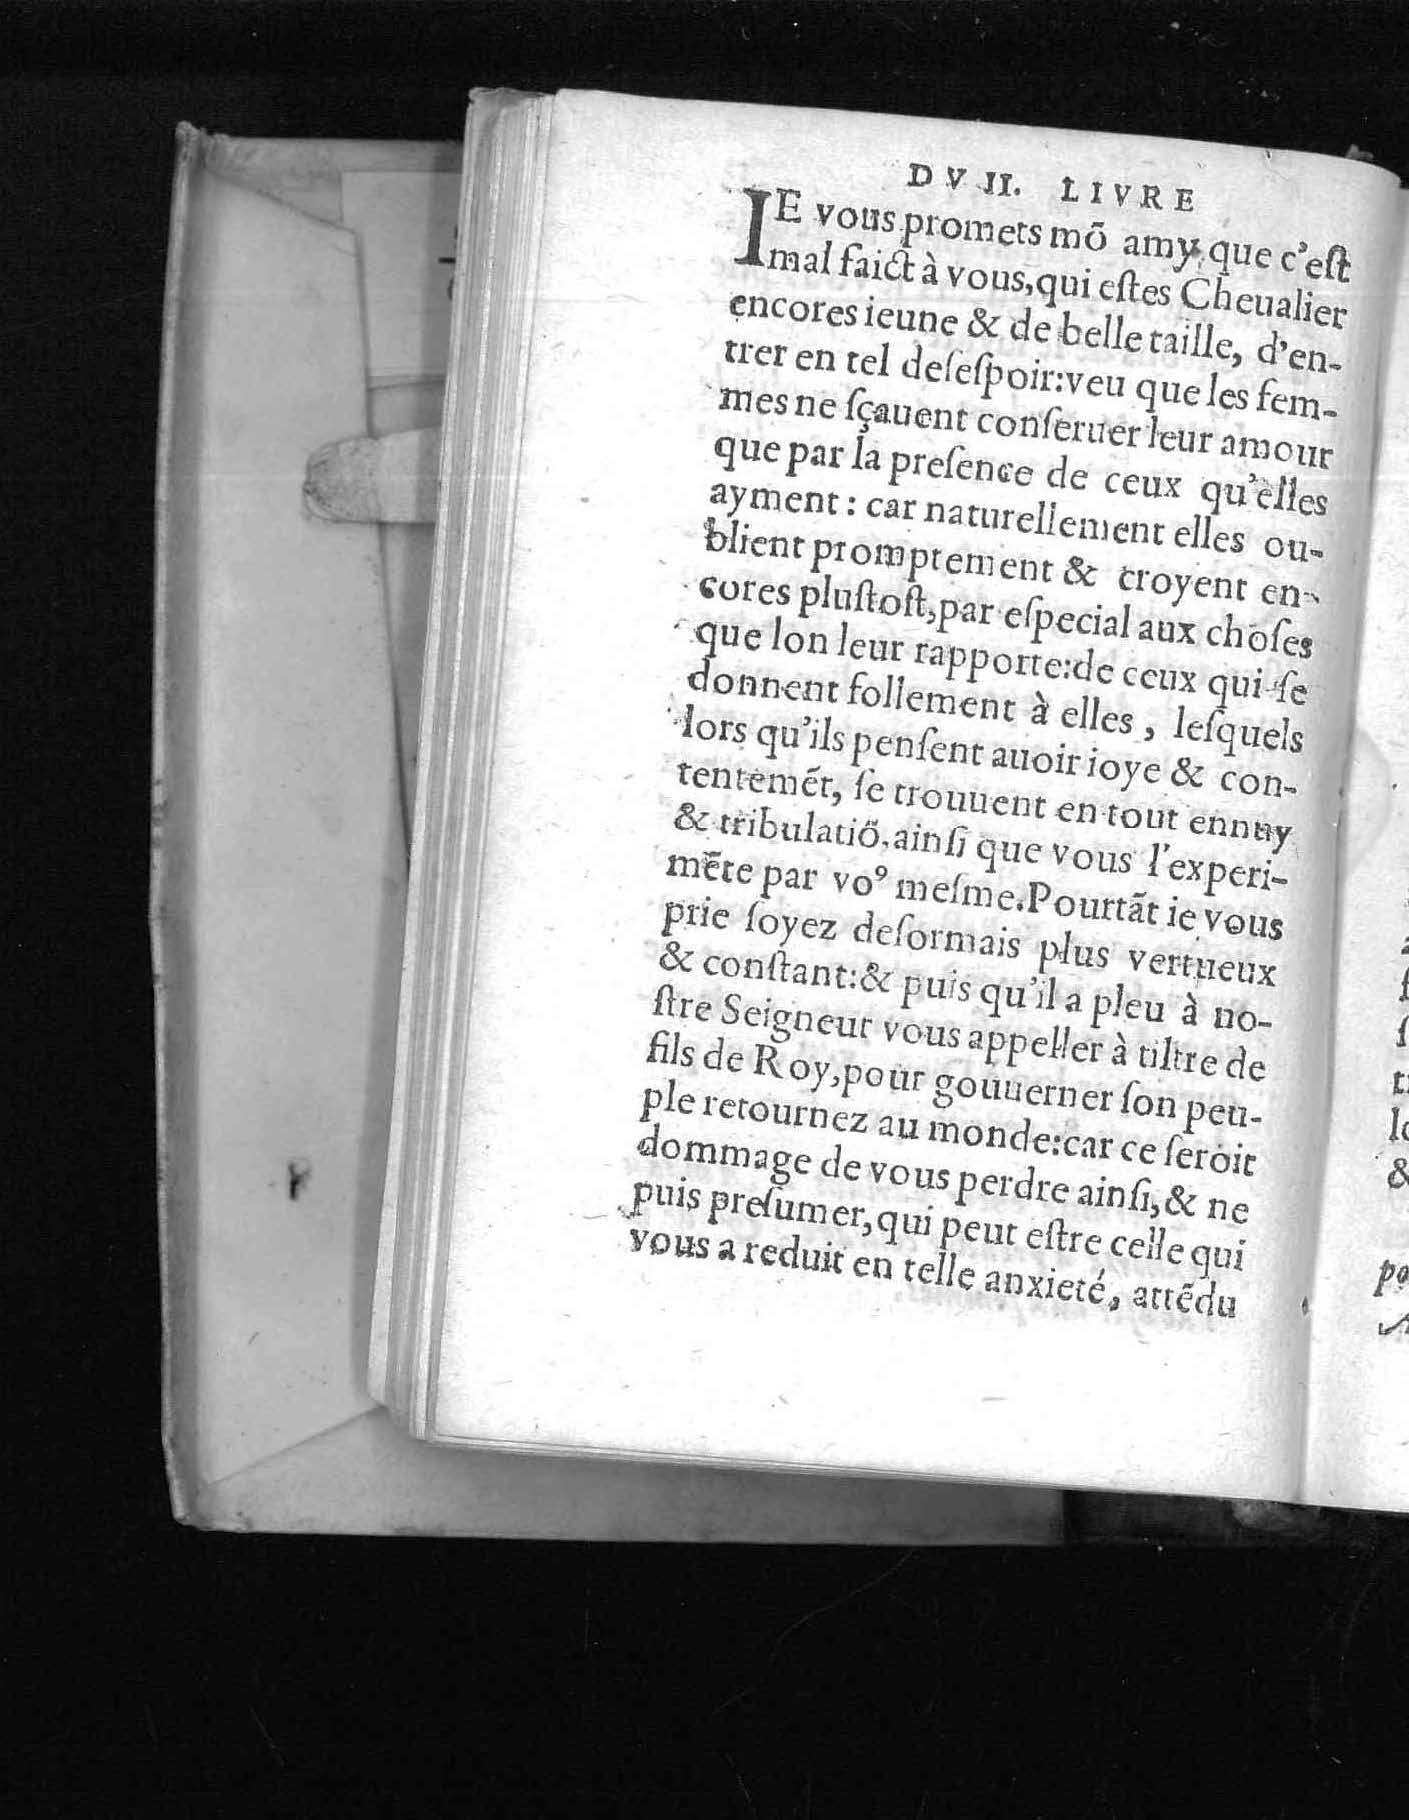 DV II. LIVRE
IE vous promets mõ amy, que c'eſt
mal faict à vous, qui eſtes Cheualier
encores ieune & de belle taille, d'en-
trer en tel deſeſpoir: veu que les fem-
mes ne ſçauent conſeruer leur amour
que par la preſence de ceux qu'elles
ayment: car naturellement elles ou-
blient promptement & croyent en-
cores pluſtoſt, par eſpecial aux choſes
que lon leur rapporte: de ceux qui ſe
donnent follement à elles, leſquels
lors qu'ils penſent auoir ioye & con-
tentemẽt, ſe trouuent en tout ennuy
& tribulatiõ, ainſi que vous l'experi-
mẽte par voꝰ meſme. Pourtãt ie vous
prie ſoyez deſormais plus vertueux
& conſtant: & puis qu'il a pleu à no-
ſtre Seigneur vous appeller à tiltre de
fils de Roy, pour gouuerner ſon peu-
ple retournez au monde: car ce ſeroit
dommage de vous perdre ainſi, & ne
puis preſumer, qui peut eſtre celle qui
vous a reduit en telle anxieté, attẽdu